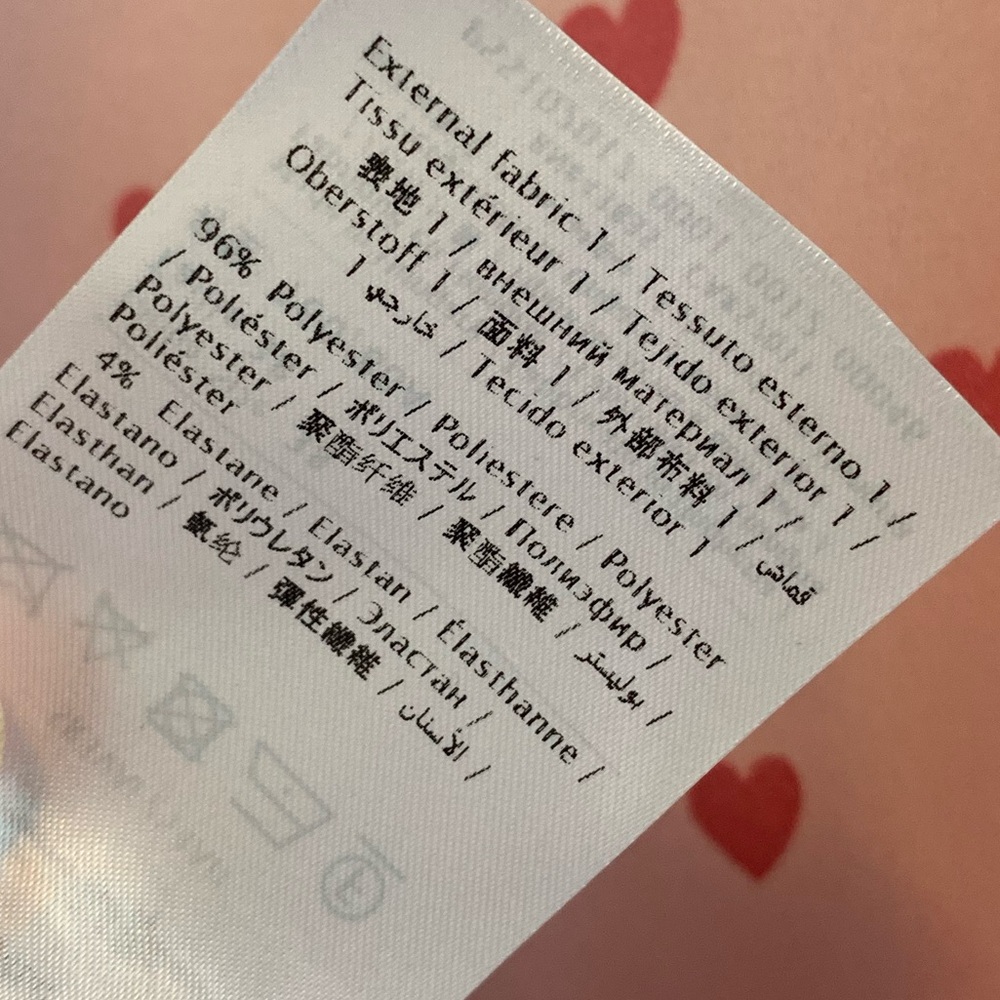 External fabric 1 / Tessuto esterno 1 /
Tissu extérieur 1 / Tejido exterior 1 /
表地 1 / внешний материал 1 /
Oberstoff 1 / 面料 1 / 外部布料 1 / قماش
خارجي / Tecido exterior 1
1
96% Polyester / Poliestere / Polyester
/ Poliéster / ポリエステル / Полиэфир /
Polyester / 聚酯纤维 / 聚酯纖維 / بوليستر /
Poliéster
4% Elastane / Elastan / Élasthanne /
Elastano / ポリウレタン / Эластан /
Elasthan / 氨纶 / 彈性纖維 / الأستان /
Elastano